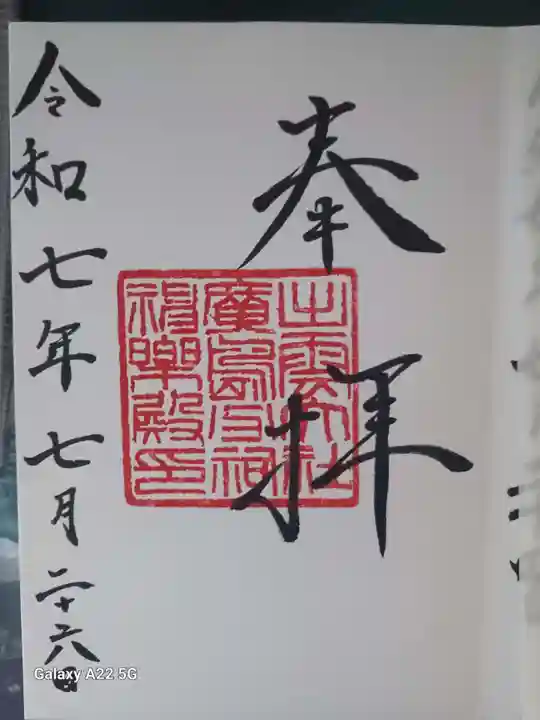 奉拝
出雲大社
廣島分祠
神樂殿印
令和七年七月二十六日
Galaxy A22 5G